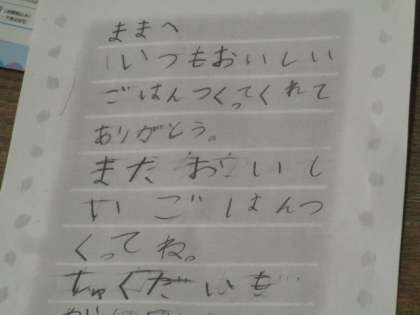 ままへ
いつもおいしい
ごはんつくってくれて
ありがとう。
また おいし
い ごはんつ
くってね。